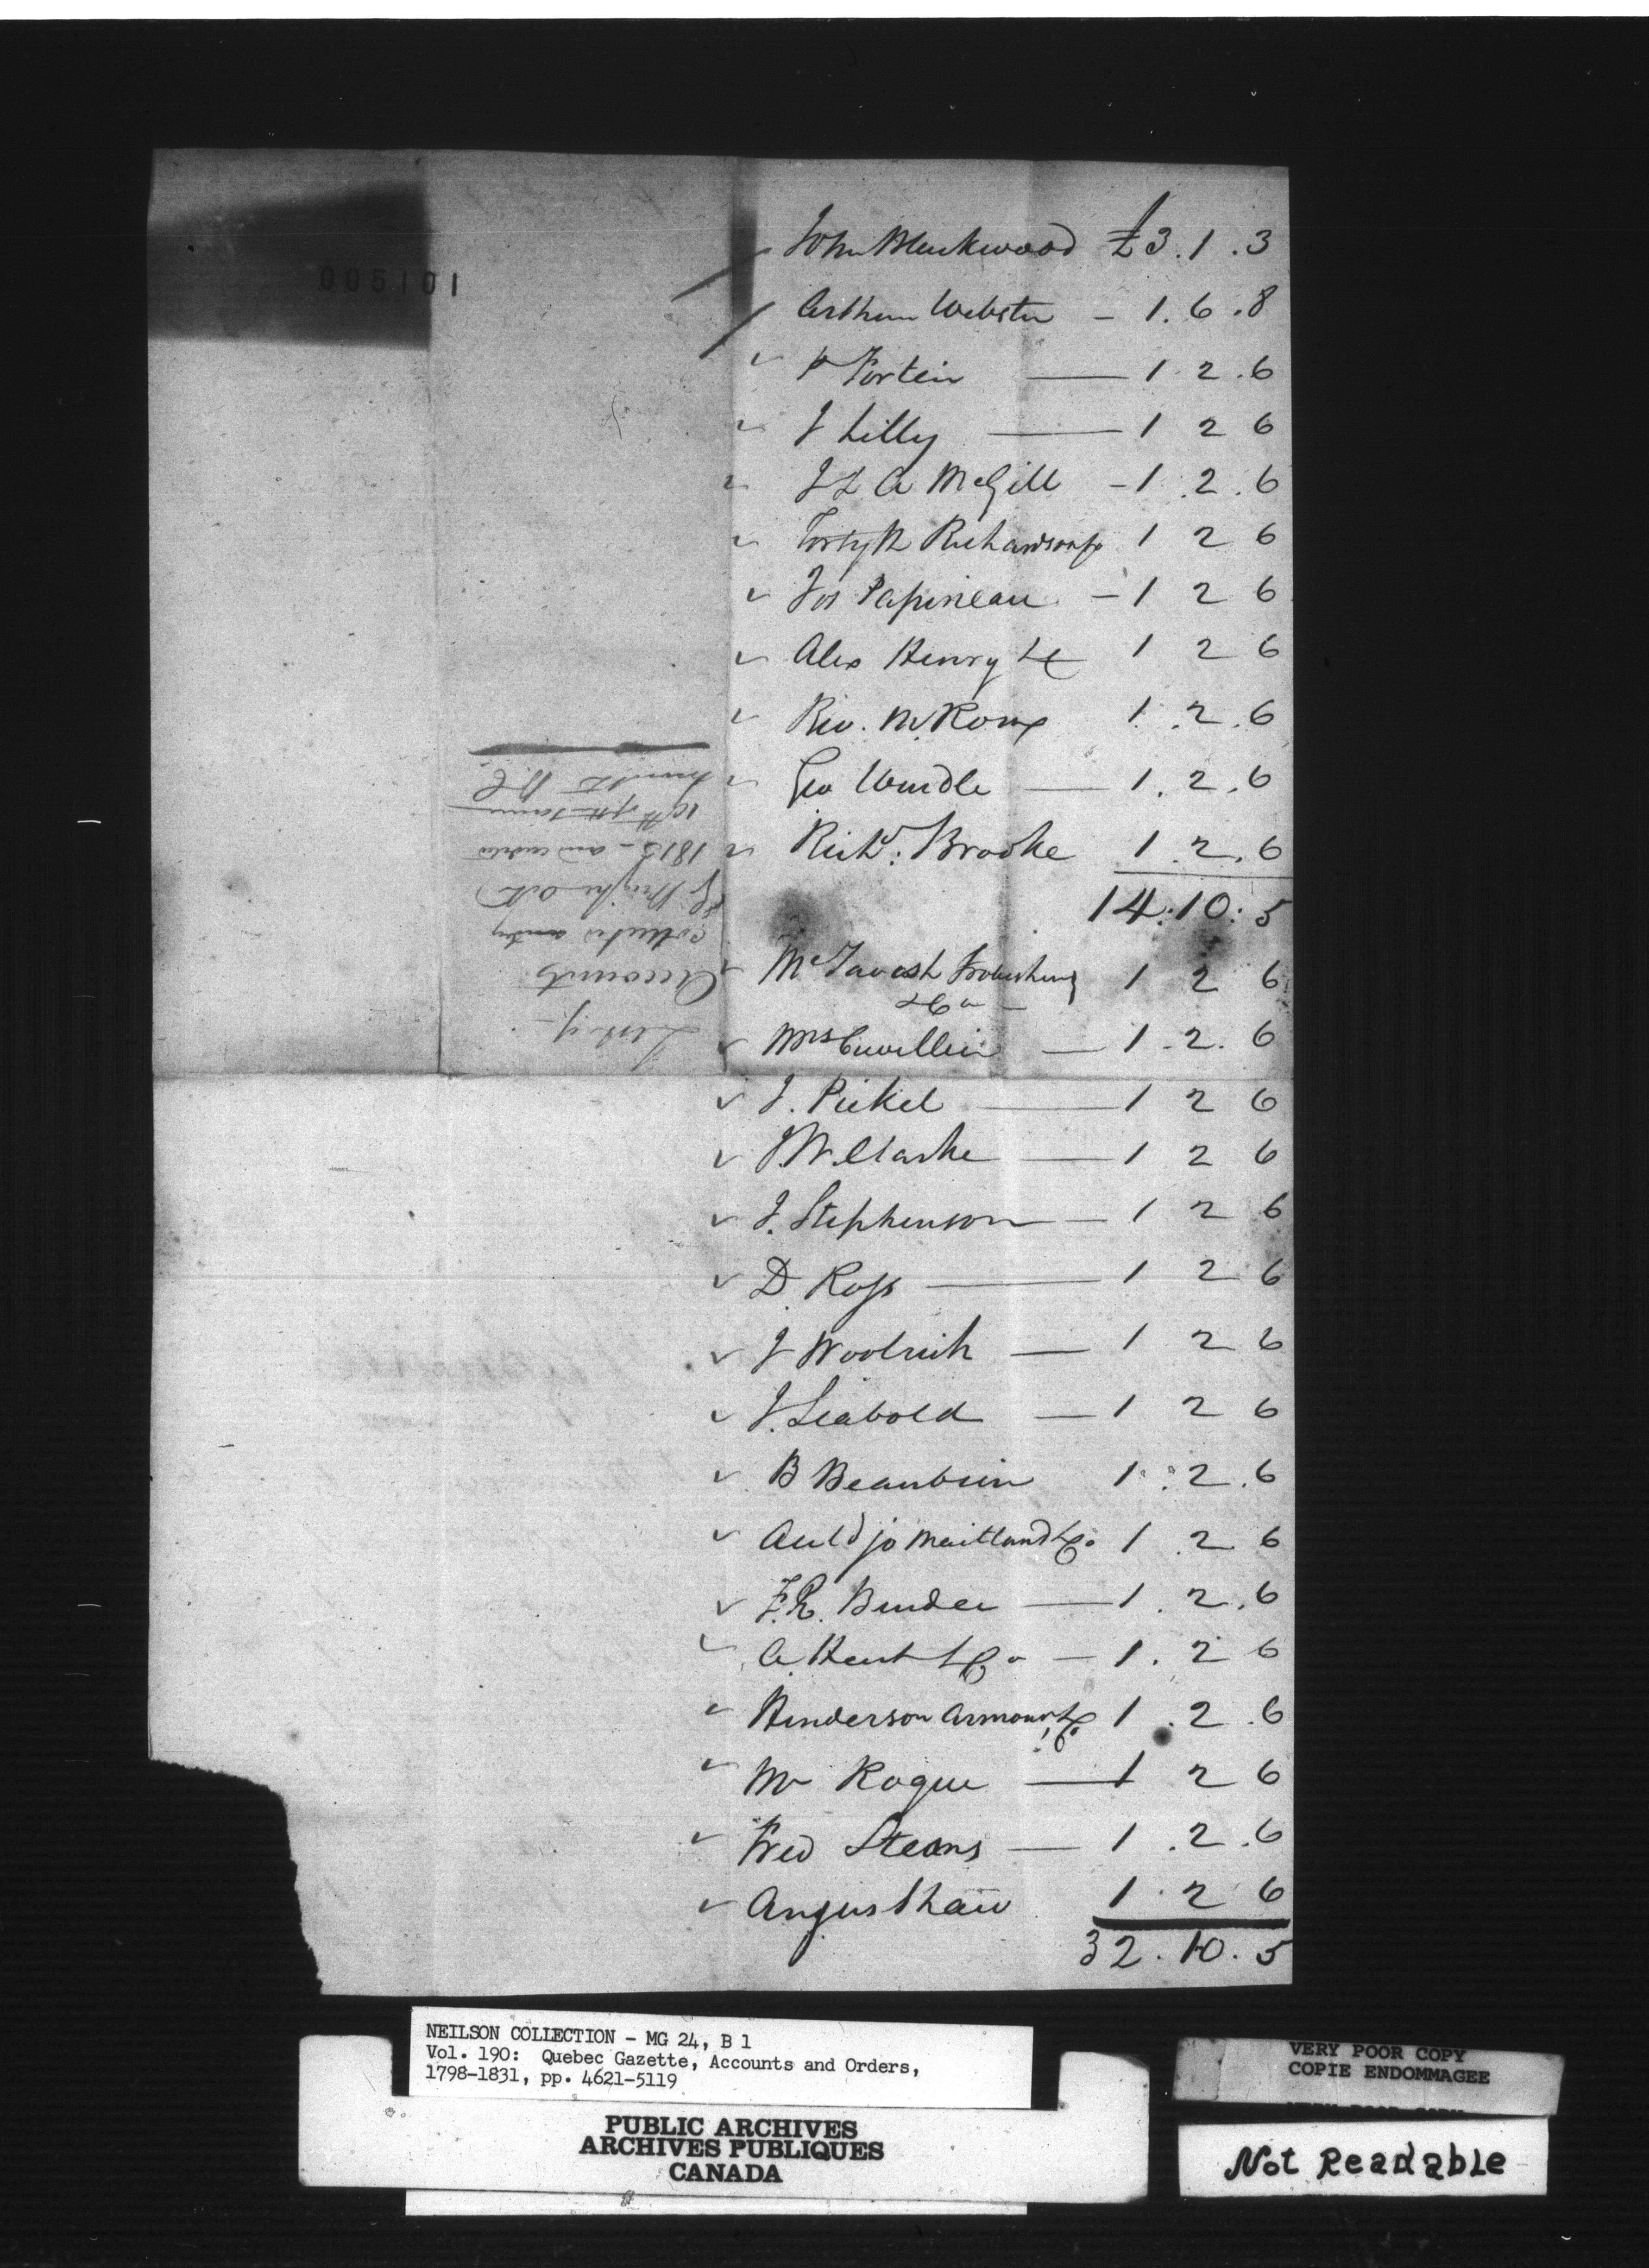 005101
John Blackwood £3.1.3
Arthur Webster - 1.6.8
P Fortin — 1.2.6
J Lilly — 1 2 6
J & A McGill - 1.2.6
Forsyth Richardson & Co 1 2 6
Jos Papineau - 1 2 6
Alex Henry 1 2 6
Rev. Mr Roux 1.2.6
Geo Windle — 1.2.6
Richd: Brooke 1.2.6
14:10:5
McTavish Frobisher
& Co — 1 2 6
Mrs Cuvillier — 1.2.6
J. Pickel — 1 2 6
J.W. Clarke — 1 2 6
J. Stephenson — 1 2 6
D. Ross — 1 2 6
J Woolrich — 1 2 6
J. Seabold — 1 2 6
B Beaubien 1.2.6
Auldjo Maitland & Co 1.2 6
F.R. Bender — 1.2.6
A. Hart & Co — 1.2 6
Henderson Armour & Co 1.2.6
Mr Rogue — 1 2 6
Fred Stearns — 1.2.6
Angus Shaw 1.2 6
32.10.5
List of
Accounts
1815
NEILSON COLLECTION - MG 24, B 1
Vol. 190: Quebec Gazette, Accounts and Orders,
1798-1831, pp. 4621-5119
PUBLIC ARCHIVES
ARCHIVES PUBLIQUES
CANADA
VERY POOR COPY
COPIE ENDOMMAGEE
Not Readable